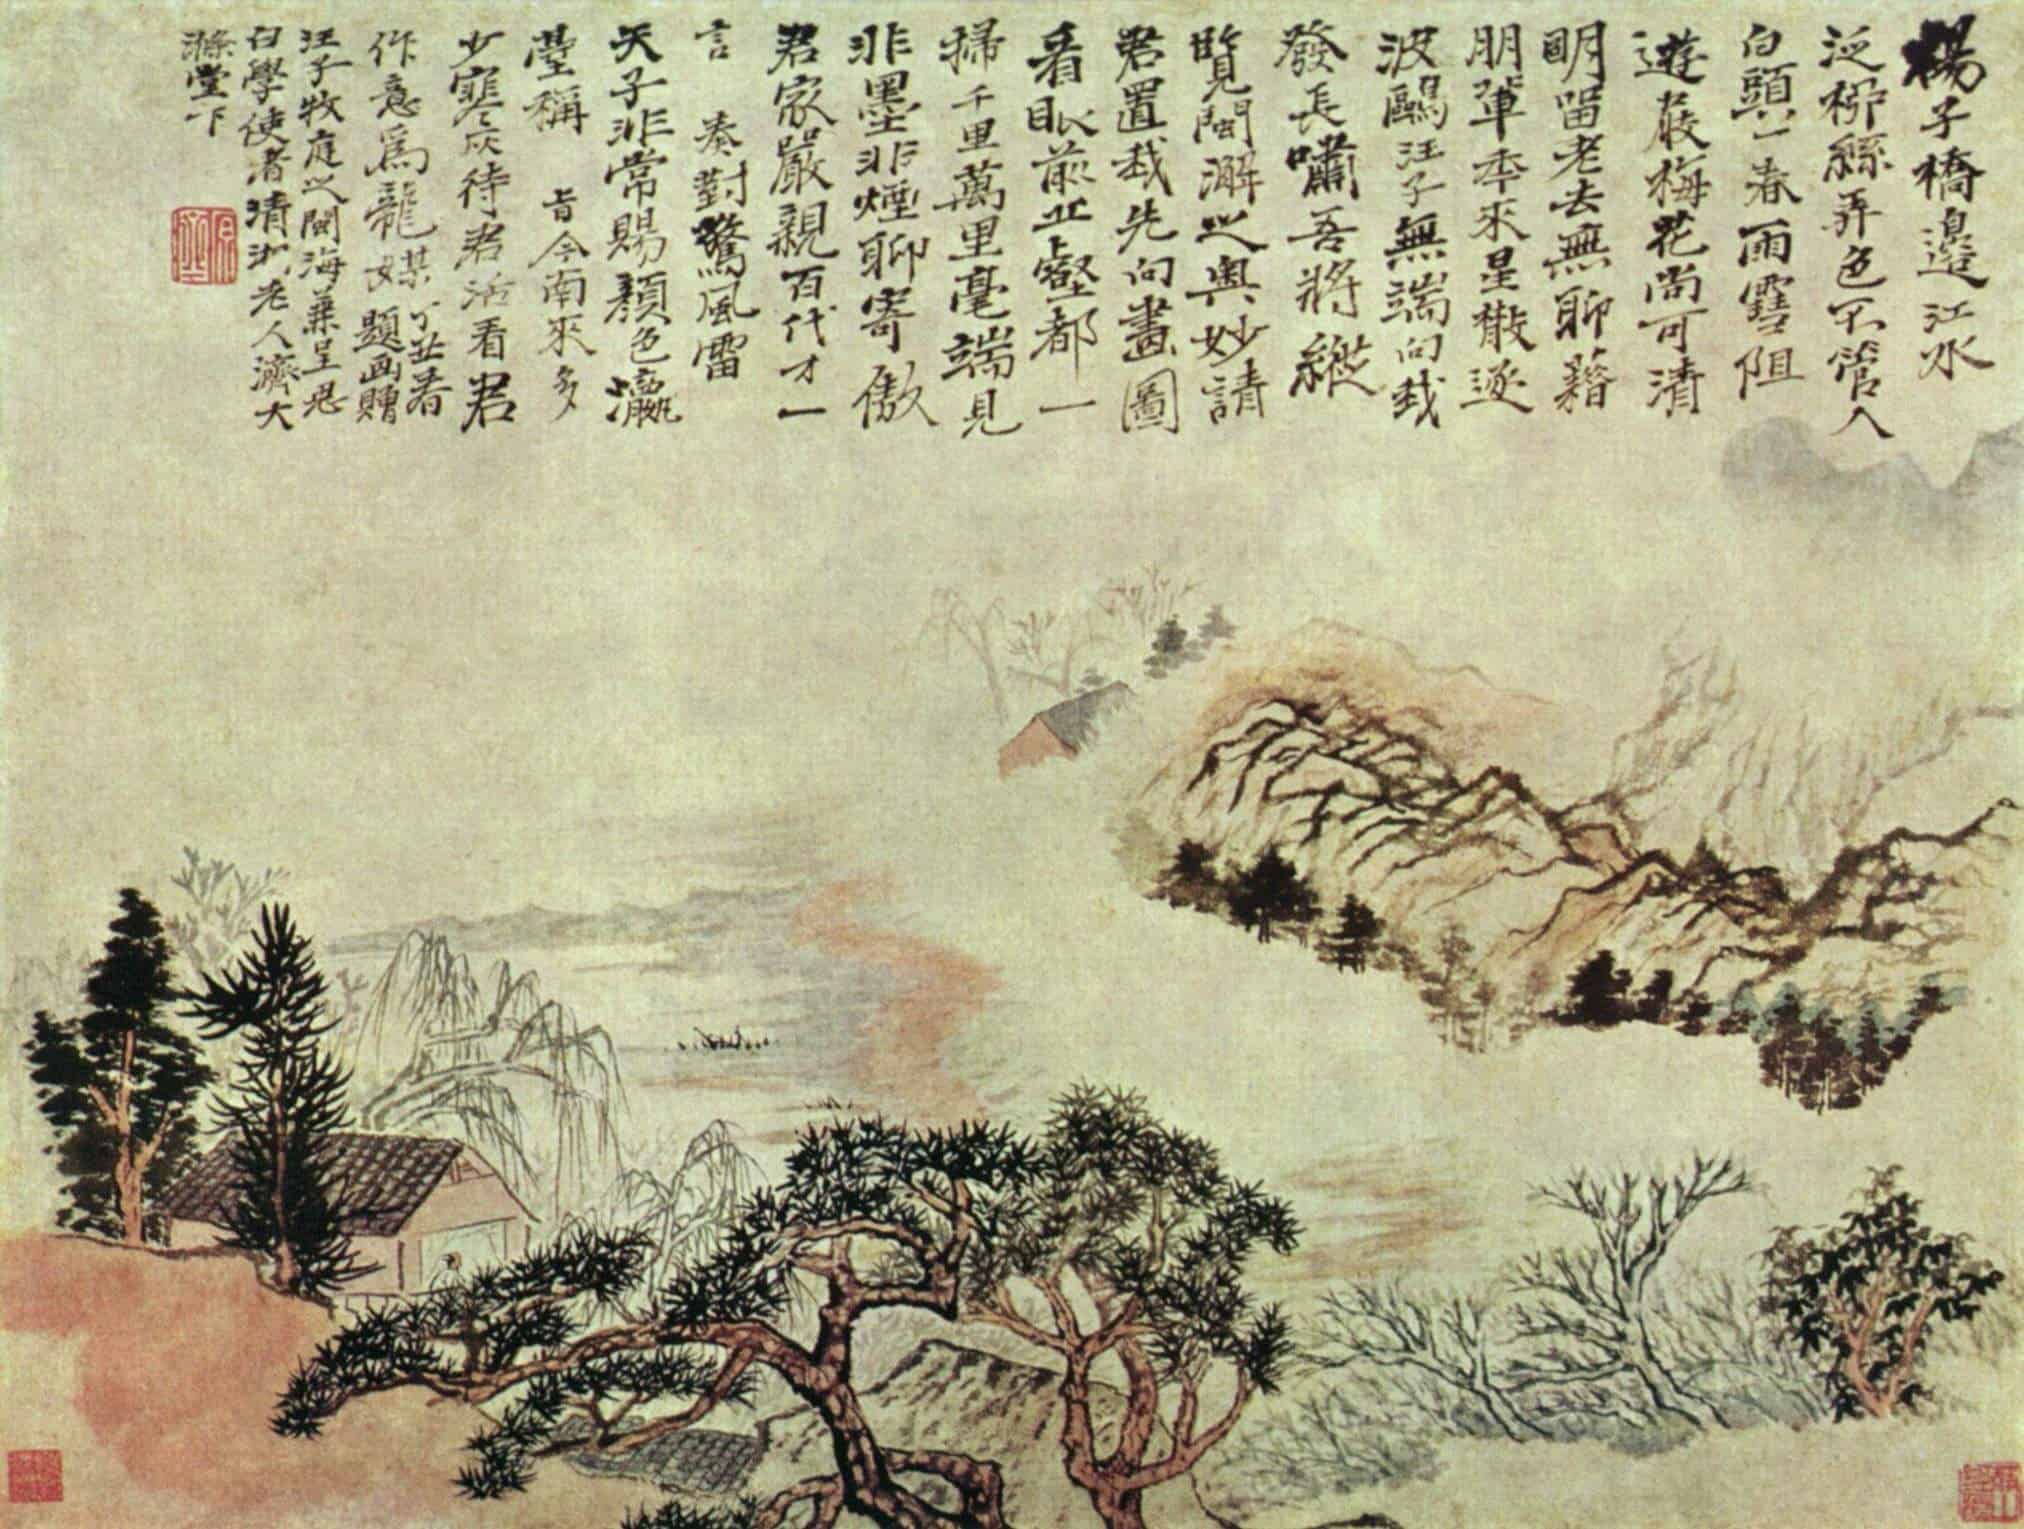 楊子橋邊江水
泛柳絲弄色不管人
白頭一春雨雪阻
遊屐梅花尚可清
明留老去無聊藉
朋輩年來星散逐
波鷗汪子無端向我
發長嘯吾將縱
覽閩澥之奧妙請
君置我先向畫圖
看眼前丘壑都一
掃千里萬里毫端見
非墨非煙聊寄傲
君家嚴親百代才一
言奏對驚風雷
天子非常賜顏色瀛
臺稱旨今南來多
少寒灰待君活看君
作意為龍媒丁丑春
題画贈
汪子牧庭之閩海兼呈思
白學使者清湘老人濟大
滌堂下